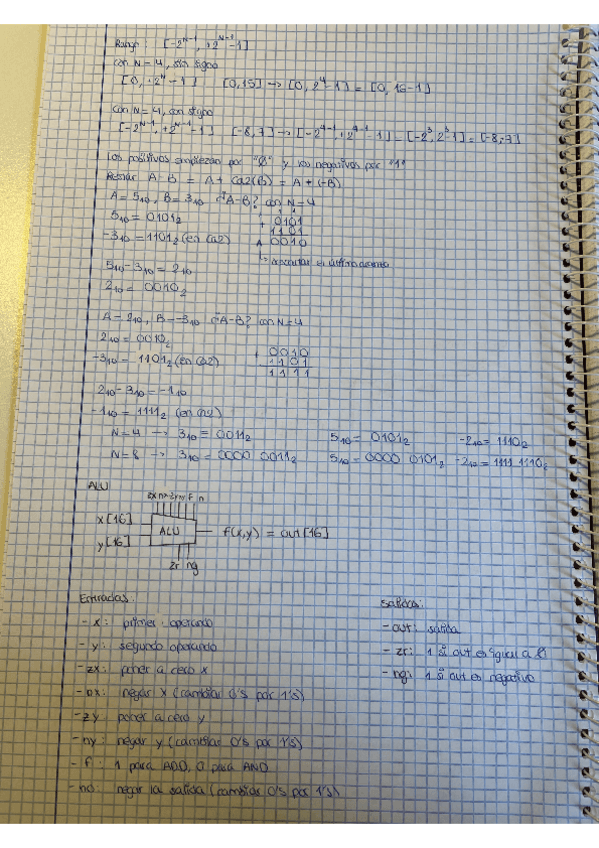 Rango: [-2^(N-1), +2^(N-1) -1]
con N=4, sin signo
[0, +2^n -1] [0,15] → [0, 2^4 -1] = [0, 16-1]
con N=4, con signo
[-2^(N-1), +2^(N-1) -1] [-8,7] → [-2^(4-1), +2^(4-1) -1] = [-2^3, 2^3 -1] = [-8,7]
Los positivos empiezan por "0" y los negativos por "1"
Restar A-B = A + Ca2(B) = A + (-B)
A = 5₁₀, B = 3₁₀ ¿A-B? con N=4
5₁₀ = 0101₂ + 0101
-3₁₀ = 1101₂ (en ca2) 1101
1 0010
↳ descartar el último
5₁₀ - 3₁₀ = 2₁₀
2₁₀ = 0010₂
A = 2₁₀, B = -3₁₀ ¿A-B? con N=4
2₁₀ = 0010₂ + 0010
-3₁₀ = 1101₂ (en ca2) 1101
1111
2₁₀ - 3₁₀ = -1₁₀
-1₁₀ = 1111₂ (en
N=4 → 3₁₀ = 0011₂ 5₁₀ = 0101₂ -2₁₀ = 1110₂
N=8 → 3₁₀ = 0000 0011₂ 5₁₀ = 0000 0101₂ -2₁₀ = 1111 1110₂
ALU
zx nx zy ny f n
x[16]
ALU f(x,y) = out[16]
y[16]
zr ng
Entradas:
- x: primer operando
- y: segundo operando
- zx: poner a cero x
- nx: negar x (cambiar 0's por 1's)
- zy poner a cero y
- ny: negar y (cambiar 0's por 1's)
- f: 1 para ADD, 0 para AND
- no: negar la salida (cambiar 0's por 1's)
Salidas:
- out: salida
- zr: 1 si out es igual a 0
- ng: 1 si out es negativo